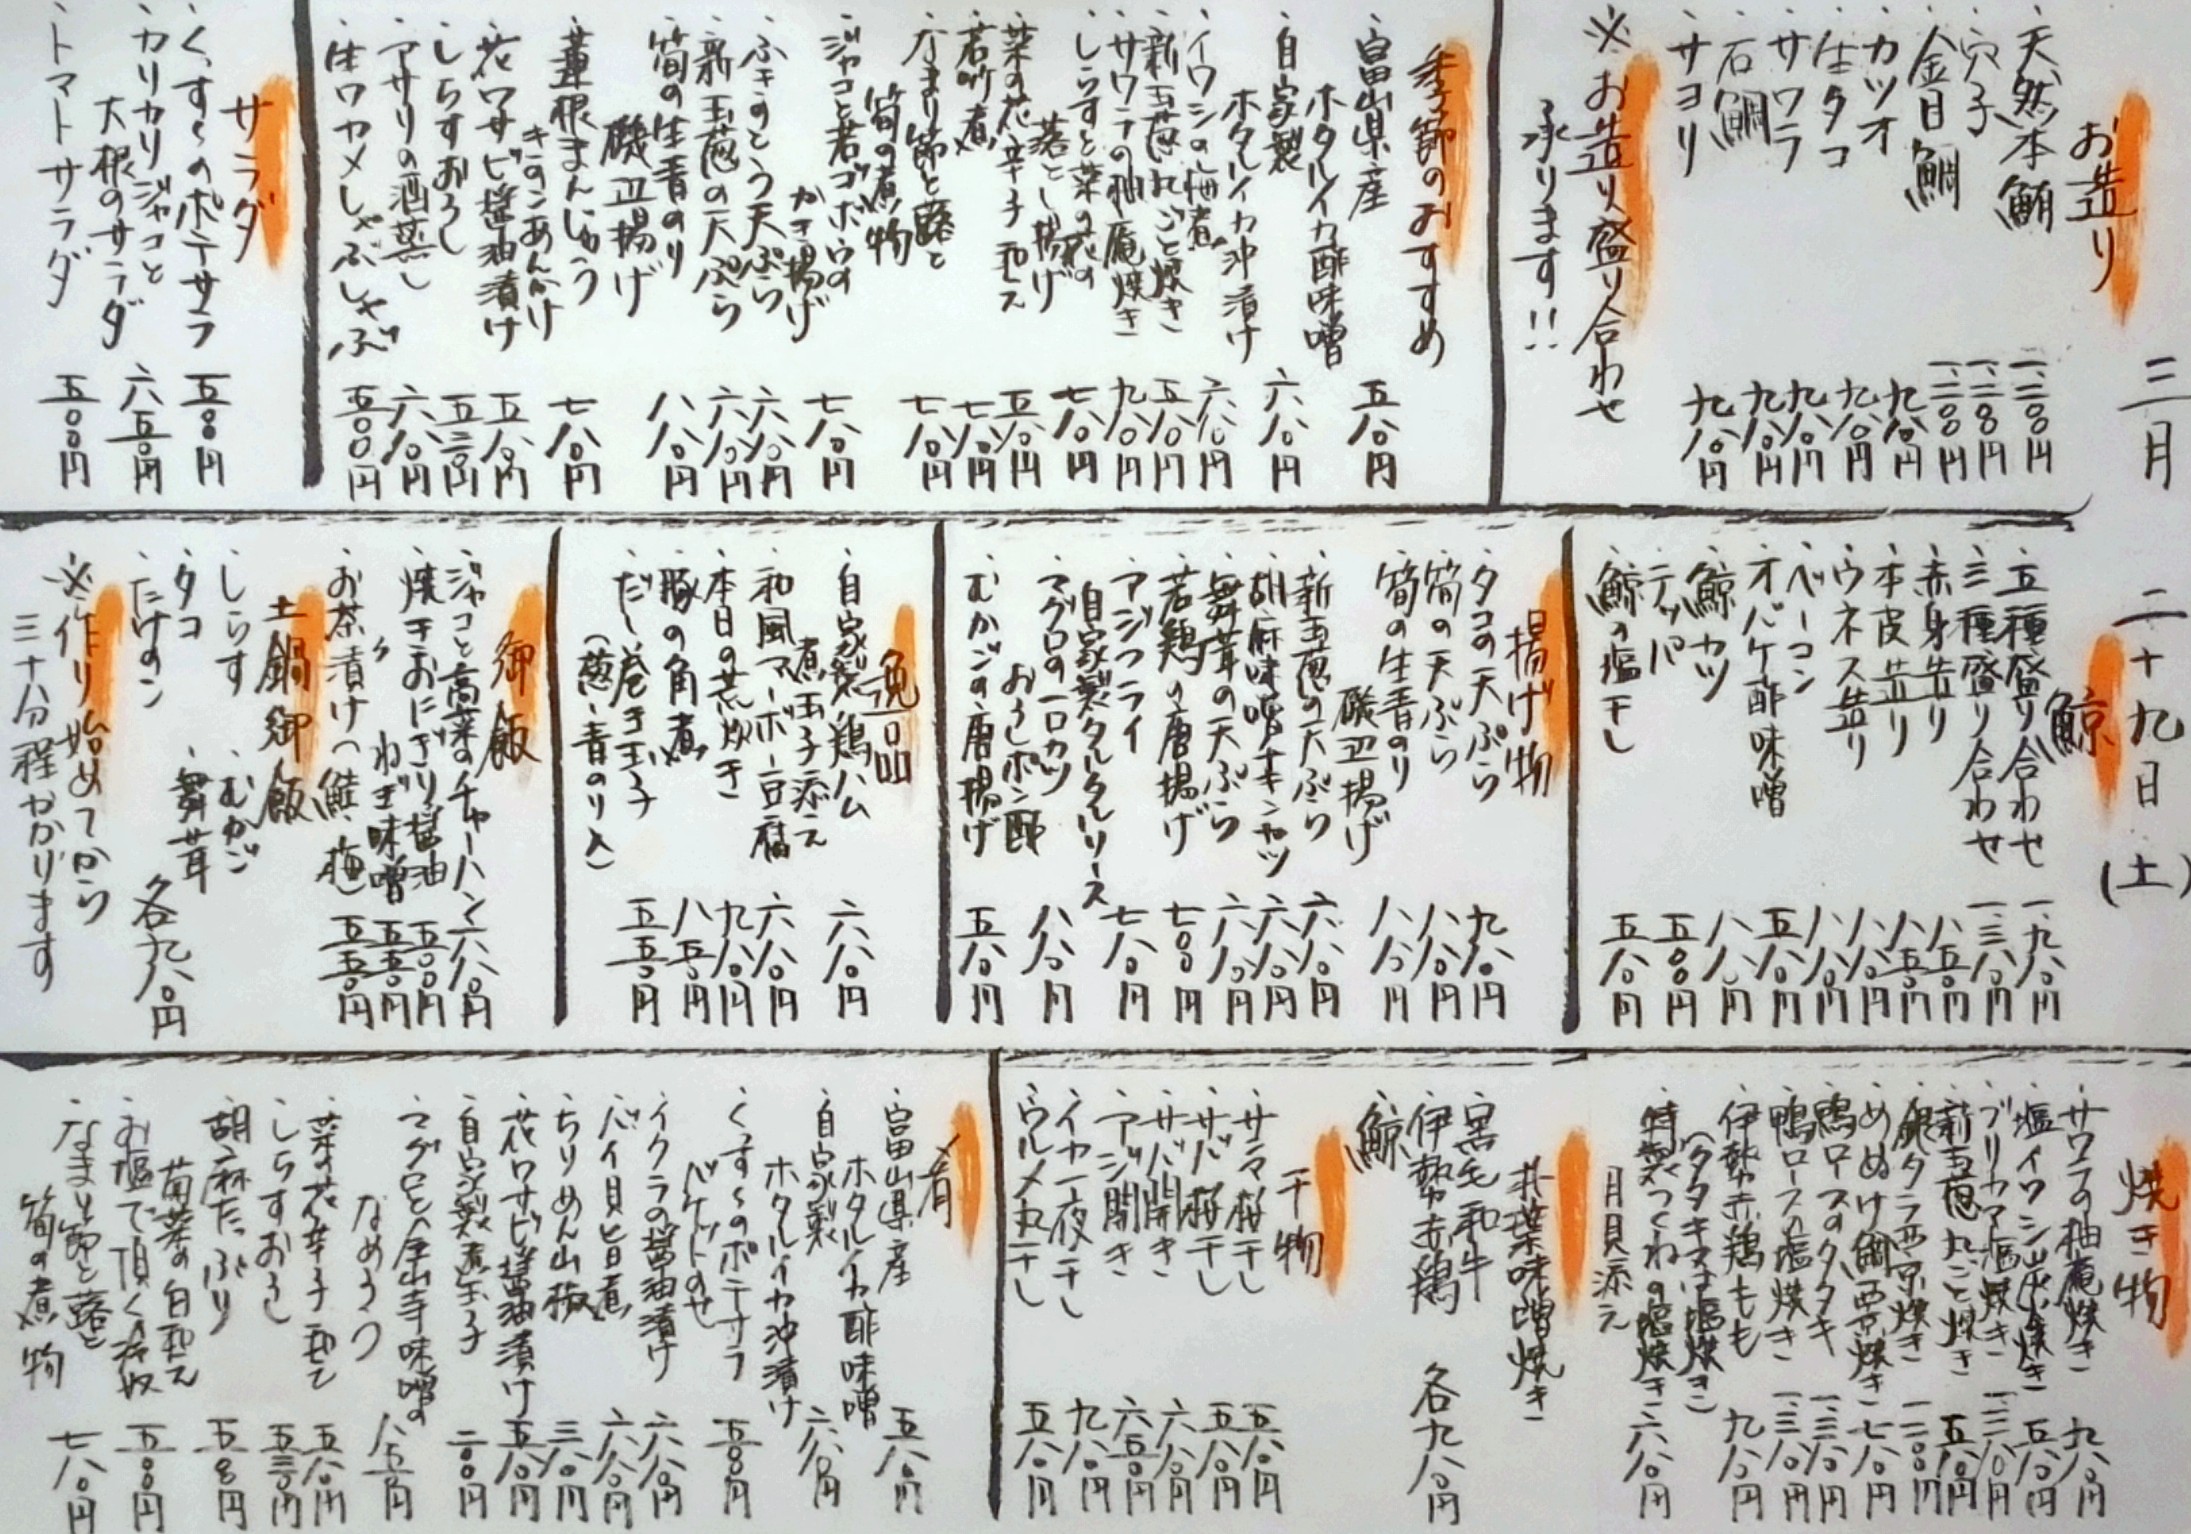 三月 二十九日 (土)
お造り
・天然本鮪 一、二〇〇円
・穴子 一、二〇〇円
・金目鯛 一、二〇〇円
・カツオ 九八〇円
・生タコ 九八〇円
・サワラ 九八〇円
・石鯛 九八〇円
・サヨリ 九八〇円
※お造り盛り合わせ
承ります!!
季節のおすすめ
・富山県産
ホタルイカ酢味噌 五八〇円
・自家製
ホタルイカ沖漬け 六八〇円
・イワシの梅煮 六八〇円
・新玉葱丸ごと焼き 五八〇円
・サワラの柚庵焼き 九八〇円
・しらすと菜の花の
落とし揚げ 七八〇円
・菜の花辛子和え 五八〇円
・若竹煮 七八〇円
・なまり節と蕗と
筍の煮物 七八〇円
・ジャコと若ゴボウの
かき揚げ 七八〇円
・ふきのとう天ぷら 六八〇円
・新玉葱の天ぷら 六八〇円
・筍の生青のり
磯辺揚げ 八八〇円
・蓮根まんじゅう
きのこあんかけ 七八〇円
・花ワサビ醤油漬け 五八〇円
・しらすおろし 五三〇円
・アサリの酒蒸し 六八〇円
・生ワカメしゃぶしゃぶ 五〇〇円
サラダ
・くずしのポテサラ 五〇〇円
・カリカリジャコと
大根のサラダ 六五〇円
・トマトサラダ 五〇〇円
鯨
・五種盛り合わせ 一、九八〇円
・三種盛り合わせ 一、三八〇円
・赤身造り 八五〇円
・本皮造り 八五〇円
・ウネス造り 八八〇円
・ベーコン 八八〇円
・オバケ酢味噌 五八〇円
・鯨カツ 八八〇円
・テッパ 五〇〇円
・鯨の塩干し 五八〇円
揚げ物
・タコの天ぷら 九八〇円
・筍の天ぷら 八八〇円
・筍の生青のり
磯辺揚げ 八八〇円
・新玉葱の天ぷら 六八〇円
・胡麻味噌チキンカツ 六八〇円
・舞茸の天ぷら 六八〇円
・若鶏の唐揚げ 七〇〇円
・アジフライ
自家製タルタルソース 七八〇円
・マグロの一口カツ
おろしポン酢 八八〇円
・むかごの唐揚げ 五八〇円
逸品
・自家製鶏ハム
煮玉子添え 六八〇円
・和風マーボー豆腐 六八〇円
・本日の荒炊き 九八〇円
・豚の角煮 八五〇円
・だし巻き玉子
(葱・青のり入) 五五〇円
御飯
・ジャコと高菜のチャーハン 六八〇円
・焼きおにぎり醤油 五〇〇円
〃 ねぎ味噌 五五〇円
・お茶漬け(鮭・梅) 五五〇円
土鍋御飯
・しらす ・むかご
・タコ ・舞茸
・たけのこ 各九八〇円
※作り始めてから
三十分程かかります
焼き物
・サワラの柚庵焼き 九八〇円
・塩イワシ炭火焼き 五八〇円
・ブリカマ塩焼き 一、二八〇円
・新玉葱丸ごと焼き 五八〇円
・銀タラ西京焼き 一、二〇〇円
・めぬけ鯛西京焼き 七八〇円
・鴨ロースのタタキ 一、三八〇円
・鴨ロースの塩焼き 一、三八〇円
・伊勢赤鶏もも
(タタキ又は塩焼き) 九八〇円
・特製つくねの塩焼き 六八〇円
月見添え
朴葉味噌焼き
・黒毛和牛
・伊勢赤鶏
・鯨 各九八〇円
干物
・サンマ桜干し 五八〇円
・サバ桜干し 五八〇円
・サバ開き 六八〇円
・アジ開き 六五〇円
・イカ一夜干し 九八〇円
・ウルメ丸干し 五八〇円
肴
・富山県産
ホタルイカ酢味噌 五八〇円
・自家製
ホタルイカ沖漬け 六八〇円
・くずしのポテサラ
バケットのせ 五八〇円
・イクラの醤油漬け 六八〇円
・バイ貝旨煮 六八〇円
・ちりめん山椒 三八〇円
・花ワサビ醤油漬け 五八〇円
・自家製煮玉子 二〇〇円
・マグロと金山寺味噌の
なめろう 八五〇円
・菜の花辛子和え 五八〇円
・しらすおろし 五三〇円
・胡麻たっぷり
菊菜の白和え 五五〇円
・お塩で頂く冷奴 五〇〇円
・なまり節と蕗と
筍の煮物 七八〇円